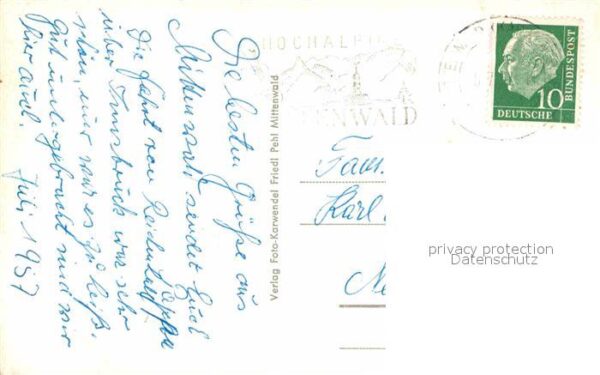 Die besten Grüße aus
Mittenwald sendet Euch
Die Fahrt von Reichenhall
über Innsbruck war sehr
schön, nur war es zu heiß.
Gut untergebracht sind wir
hier auch.
Juli 1957
Verlag Foto-Karwendel Friedl Pehl Mittenwald
HOCHALPI
ENWALD
10
DEUTSCHE
BUNDESPOST
Fam.
Karl
privacy protection
Datenschutz